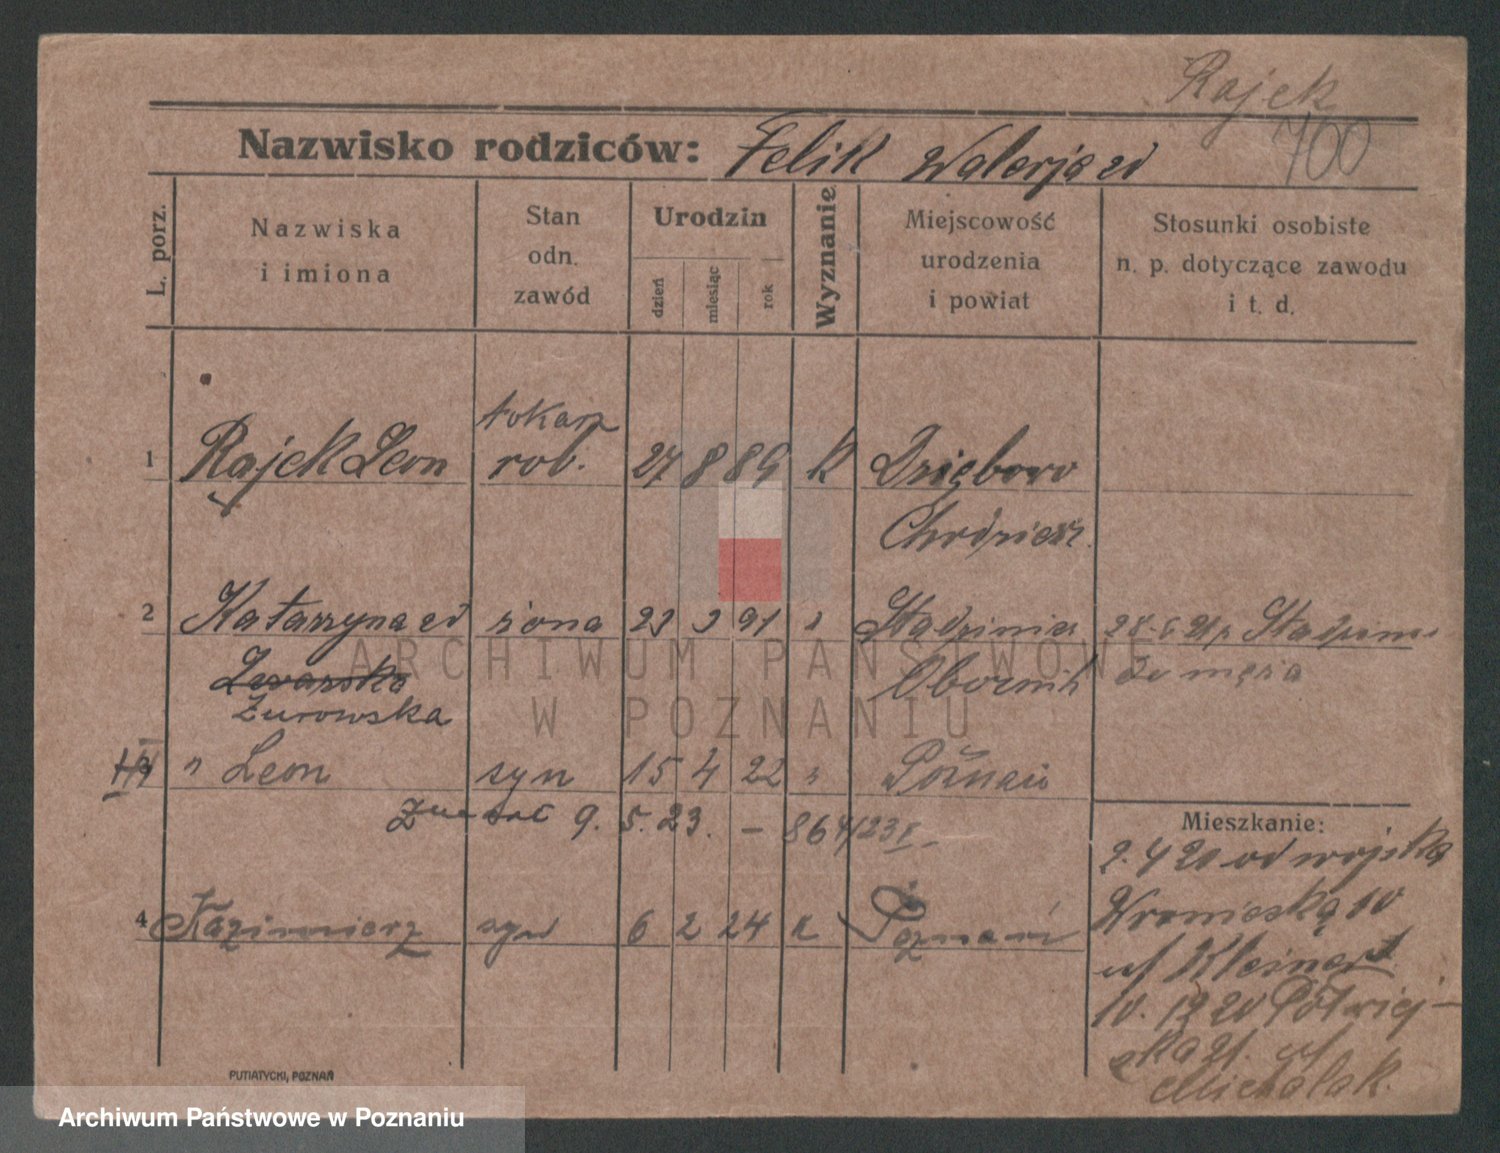 Rajek
700
Nazwisko rodziców: Felik Walerja zd
L. porz.
Nazwiska i imiona
Stan odn. zawód
Urodzin
dzień miesiąc rok
Wyznanie
Miejscowość urodzenia i powiat
Stosunki osobiste n. p. dotyczące zawodu i t. d.
tokarz
1 Rajek Leon rob. 27 8 89 k
Chodzież
2 Katarzyna zd żona 23 3 91
Żurowska
Obornik do męża
" Leon syn 15 4 22 " Poznań
9. 5. 23. – 864/23
Mieszkanie:
2.4 20 od wojska
4 Kazimierz syn 6 2 24 k Poznań
Wroniecka 10
u/ Kleinert
10. 12 20 Półwiej-
ska 21. u/
Michalak.
PUTIATYCKI, POZNAŃ
ARCHIWUM PAŃSTWOWE
W POZNANIU
Archiwum Państwowe w Poznaniu